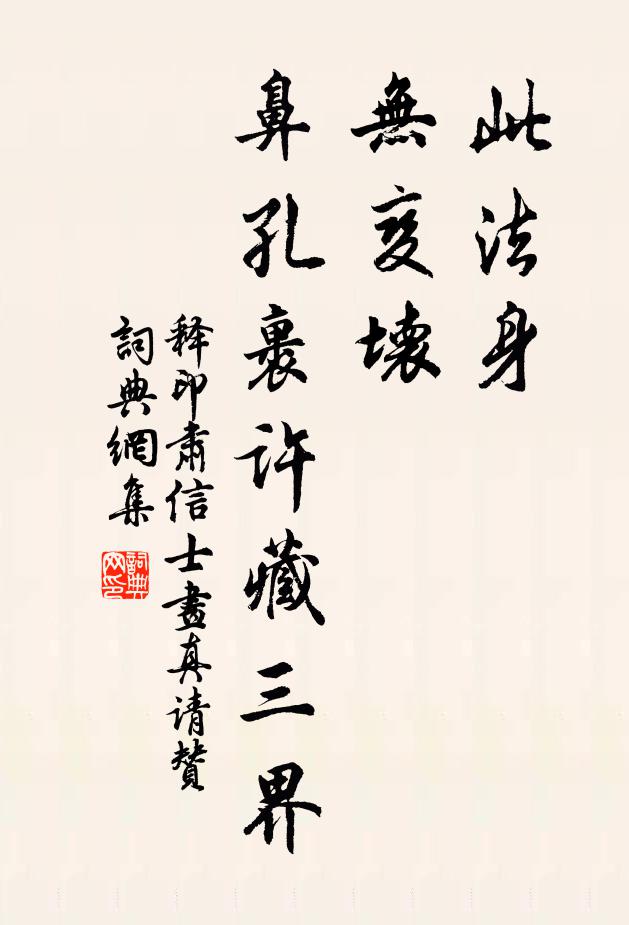 此法身
無變壞
鼻孔裹許藏三界
释印肅信士畫真请贊
詞典網集
詞典网印